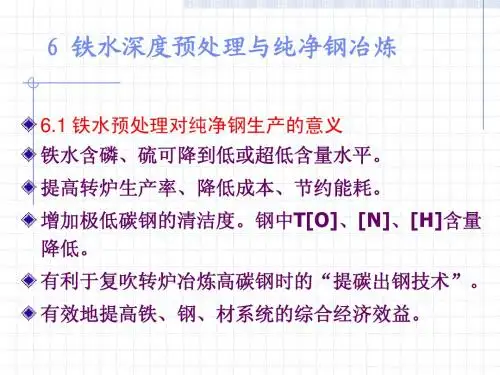 6 铁水深度预处理与纯净钢冶炼
6.1 铁水预处理对纯净钢生产的意义
铁水含磷、硫可降到低或超低含量水平。
提高转炉生产率、降低成本、节约能耗。
增加极低碳钢的清洁度。钢中T[O]、[N]、[H]含量
降低。
有利于复吹转炉冶炼高碳钢时的“提碳出钢技术”。
有效地提高铁、钢、材系统的综合经济效益。